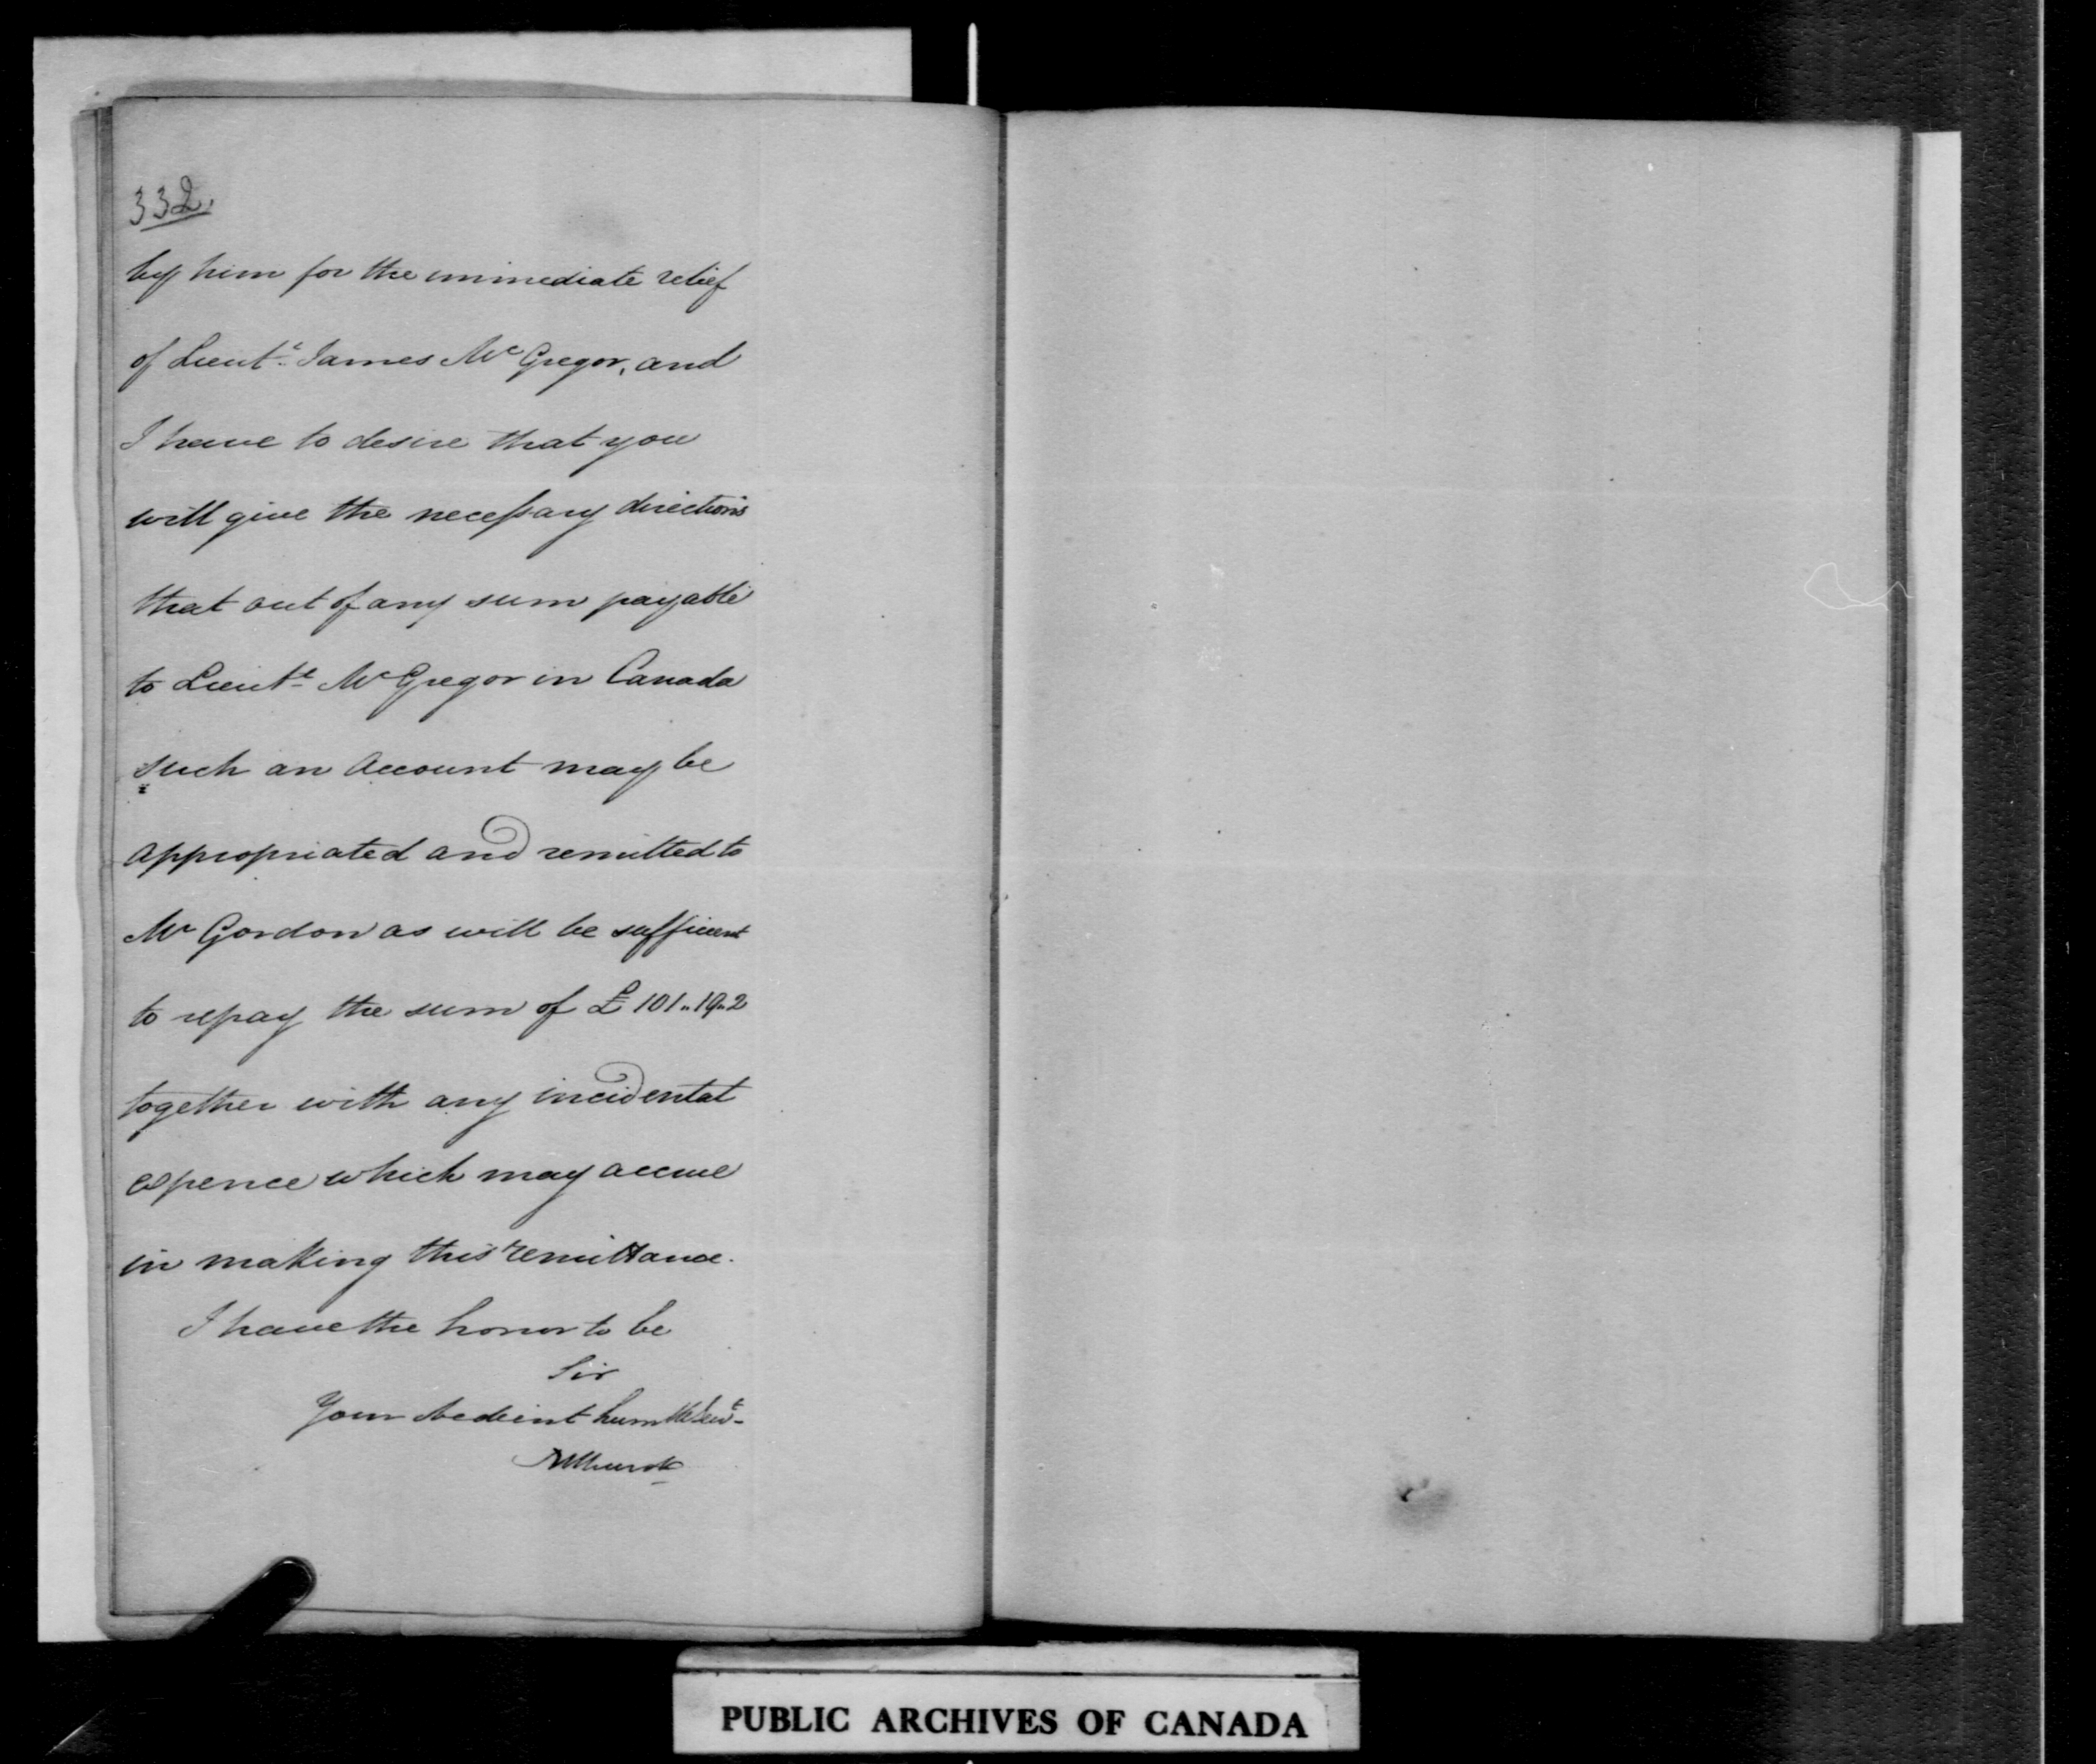 332.
by him for the immediate relief
of Lieut.t James McGregor, and
I have to desire that you
will give the necessary directions
that out of any sum payable
to Lieut.t McGregor in Canada
such an Account may be
appropriated and remitted to
Mr Gordon as will be sufficient
to repay the sum of £101..19..2
together with any incidental
expence which may accrue
in making this remittance.
I have the honor to be
Sir
Your obedient humble Servt.
Bathurst
PUBLIC ARCHIVES OF CANADA